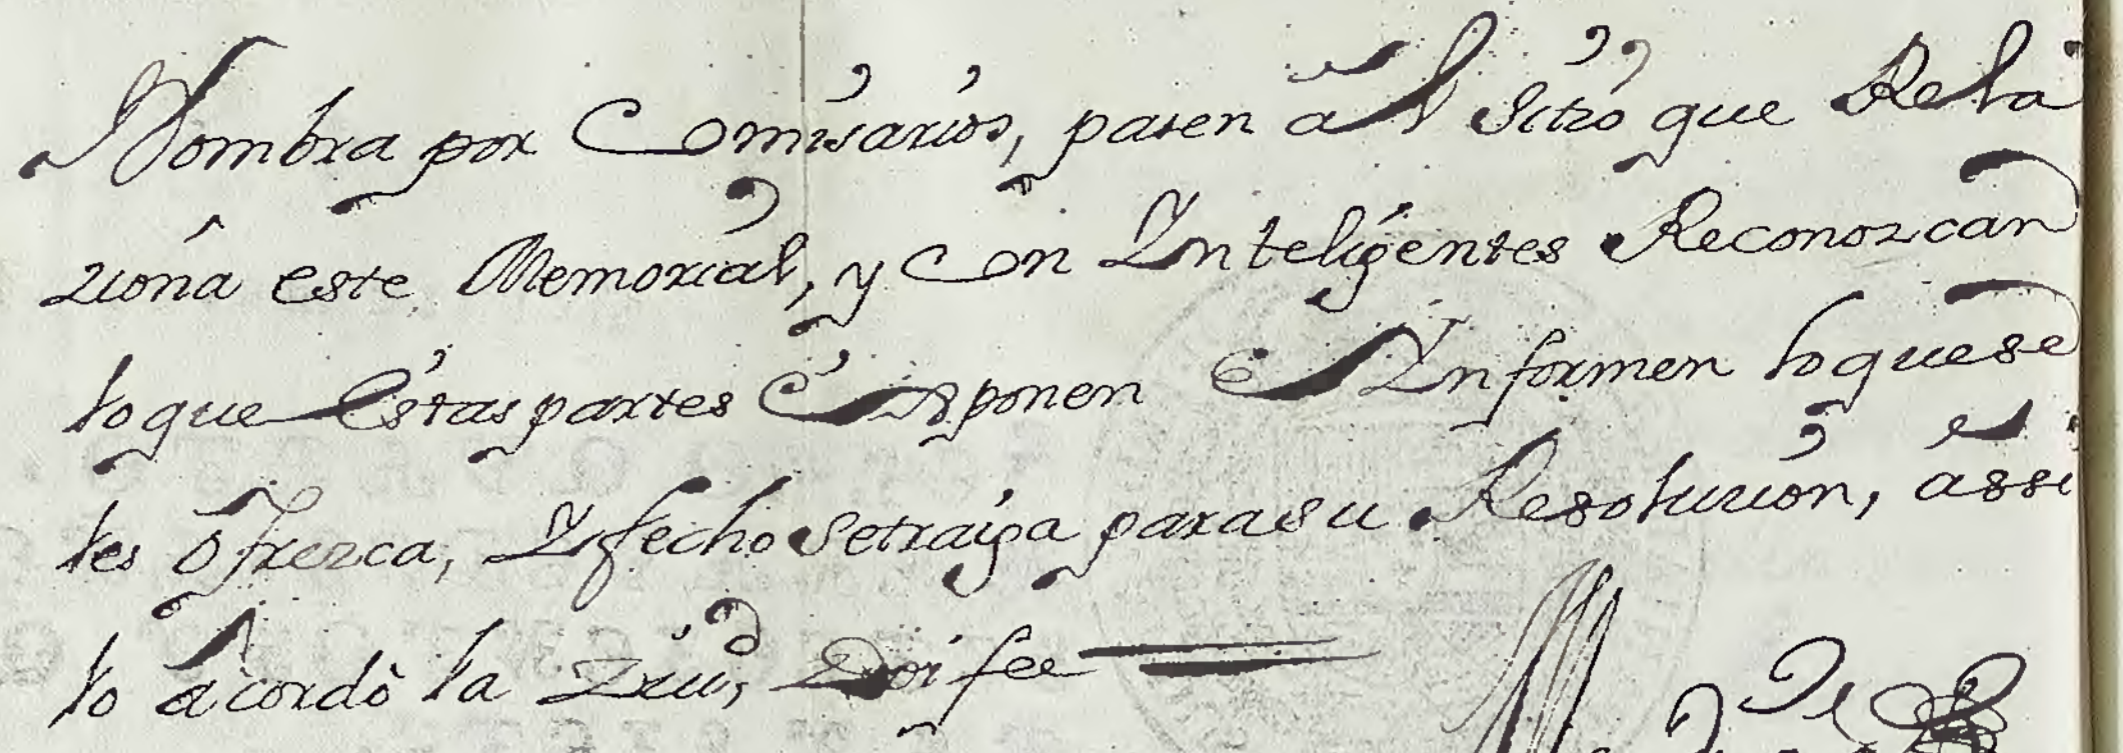 Nombra por Comisarios, pasen â el Sitio que Rela
zionâ este Memorial, y con Inteligentes Reconozcan
lo que Estas partes Exsponen e Informen lo que se
les ôfrezca, Y fecho se traiga para su Resoluzion, assi
lo âcordô la Ziud, Doi fee